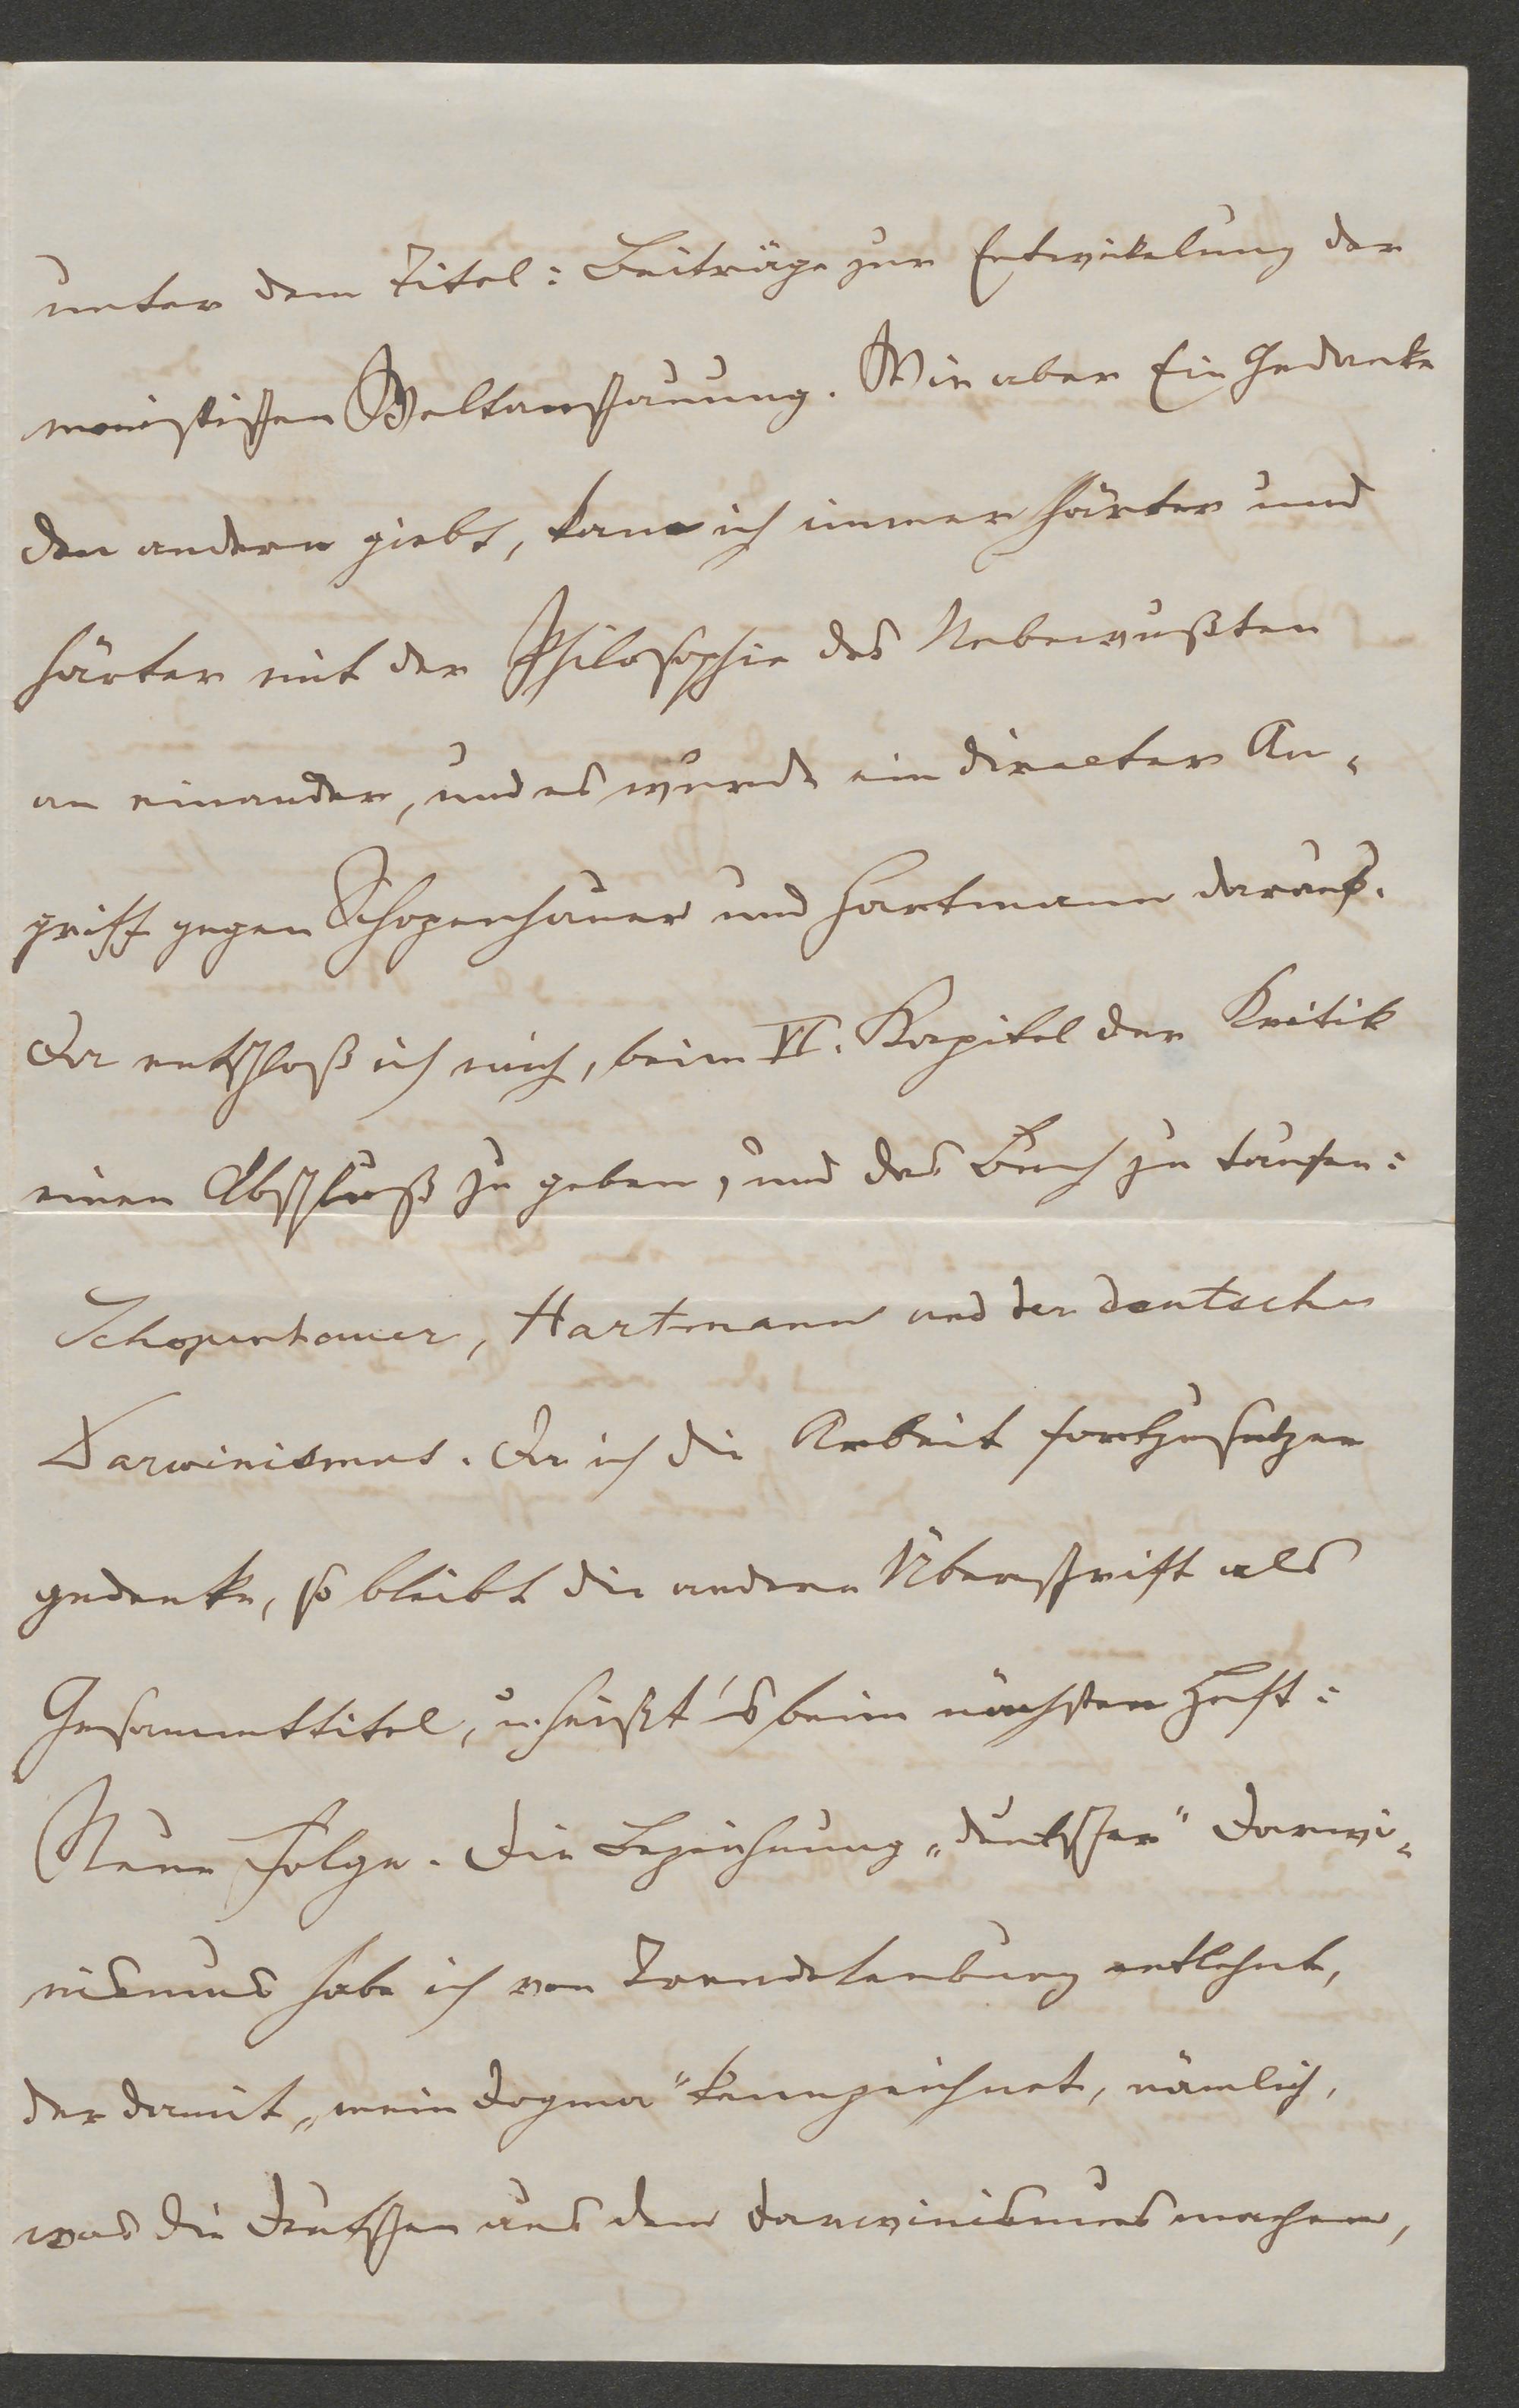 unter dem Titel: Beiträge zur Entwickelung der
monistischen Weltanschauung. Wie aber Ein Gedanke
den andern giebt, kam ich immer härter und
härter mit der Philosophie des Unbewußten
an einander, und es wurde ein directer An-
griff gegen Schopenhauer und Hartmann daraus.
Da entschloß ich mich, beim VI. Kapitel der Kritik
einen Abschluß zu geben, und das Buch zu taufen:
Schopenhauer, Hartmann und der deutsche
Darwinismus. Da ich die Arbeit fortzusetzen
gedenke, so bleibt die andere Überschrift als
Gesammttitel, u. heißt's beim nächsten Heft:
Neue Folge. Die Bezeichnung „deutscher" Darwi-
nismus habe ich von Trendelenburg entlehnt,
der damit „mein Dogma" kennzeichnet, nämlich,
was die Deutschen aus dem Darwinismus machen,